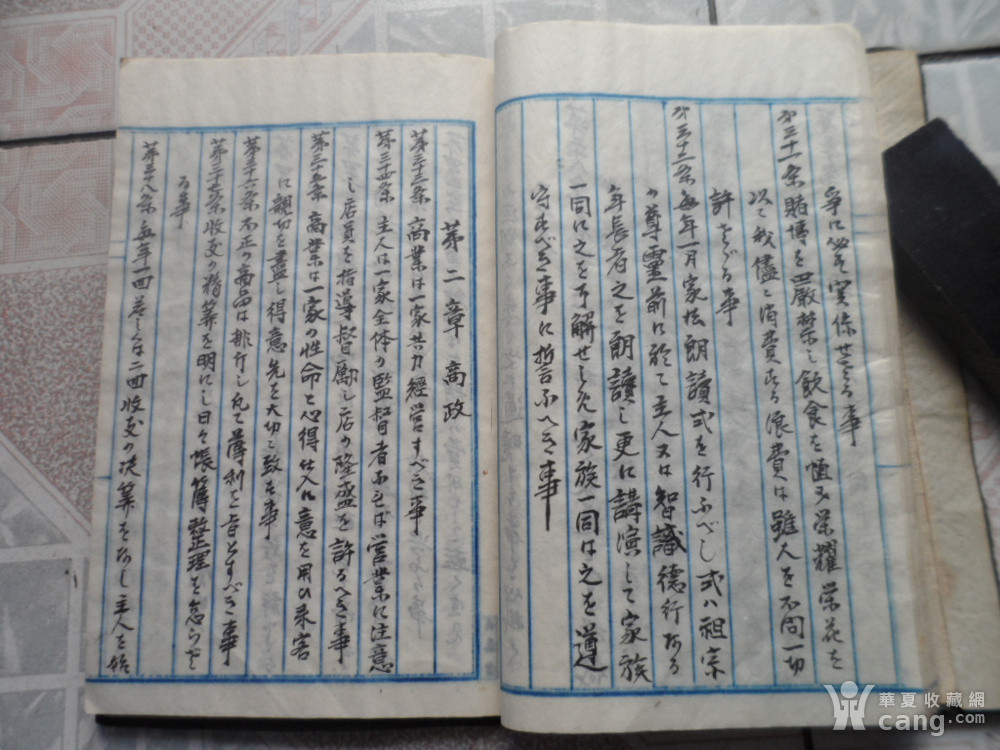 争に必ず実係せざる事
第三十一条賭博を厳禁し飲食を慎み栄耀栄花を
以て我儘に消費する浪費は雖人を不問一切
許さざる事
第三十二条毎年一月家法朗読式を行ふべし式ハ祖宗
の尊霊前に於て主人又は智識徳行ある
年長者之を朗讀し更に講演して家族
一同に之を了解せしめ家族一同は之を遵
守すべき事に誓ふべき事
第二章 商政
第三十三条 商業は一家共力経営すべき事
第三十四条 主人は一家全体の監督者なれば営業に注意
し店員を指導督励し店の隆盛を計るべき事
第三十五条 商業は一家の性命と心得仕入に意を用ひ来客
に親切を盡し得意先を大切に致す事
第三十六条 不正の商品は排斥し凡て薄利を旨とすべき事
第三十七条収支の精算を明にし日々帳簿整理を怠らざ
る事
第三十八条毎年一回若しくは二回收支の決算をなし主人を始
華夏收藏網
cang.com